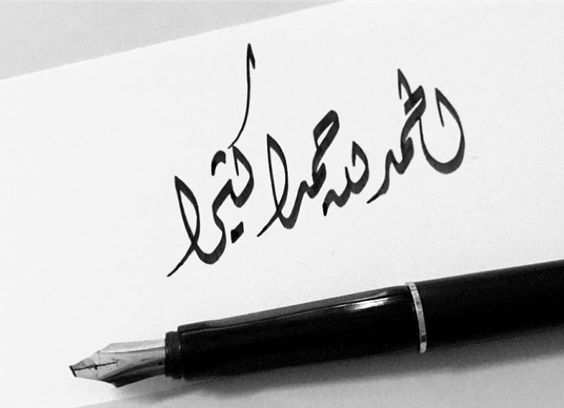 الحمد لله حمدا كثيرا